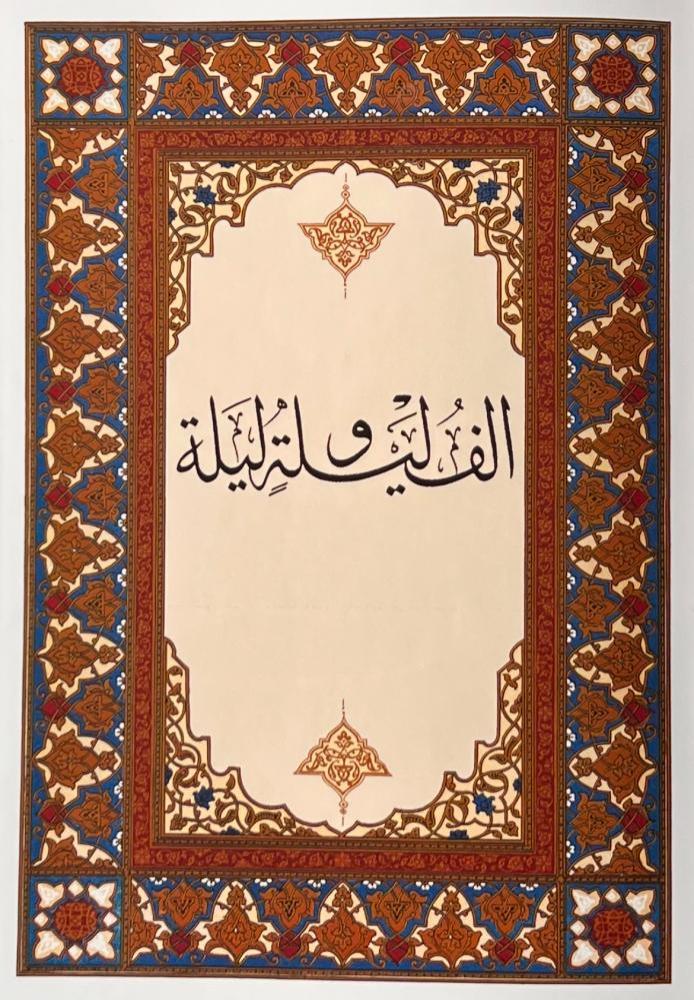 الف ليلة و ليلة